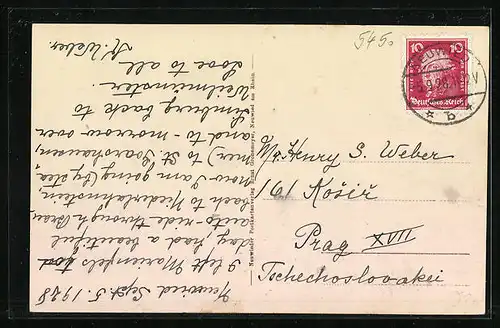 Neuwied Sept. 5. 1928
I left Marienfels to-
day, had a beautiful
auto-ride through Brau,
back to Niederlahnstein,
now I am going (by stea-
mer) to St. Goarshausen,
and to-morrow over
Limburg back to
Weilmünster.
Love to all
H. Weber
545.
10 10
Deutsches Reich
NEUWIED
5.9.28
* b
Mr. Henry S. Weber
161 Košíř
Prag XVII
Tschechoslovakei